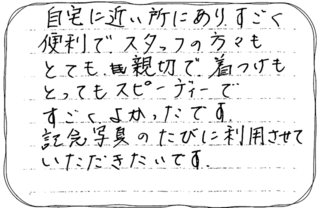 自宅に近い所にあり、すごく
便利で、スタッフの方々も
とても、親切で、着つけも
とってもスピーディーで
すごくよかったです。
記念写真のたびに利用させて
いただきたいです。